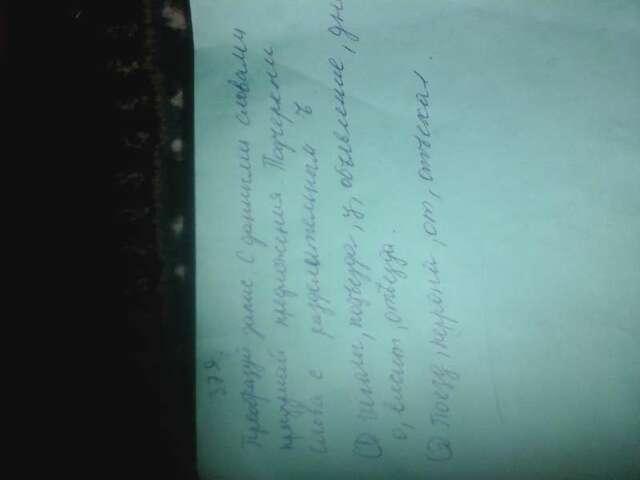 379.
Преобразуй запис С данными словами
придумай предложения Подчеркни
слова с разделительным ъ
(1) подъезда, у, объявление, дня
о, висит, отъезда.
(2) Поезд, перрона, от, отъехал.